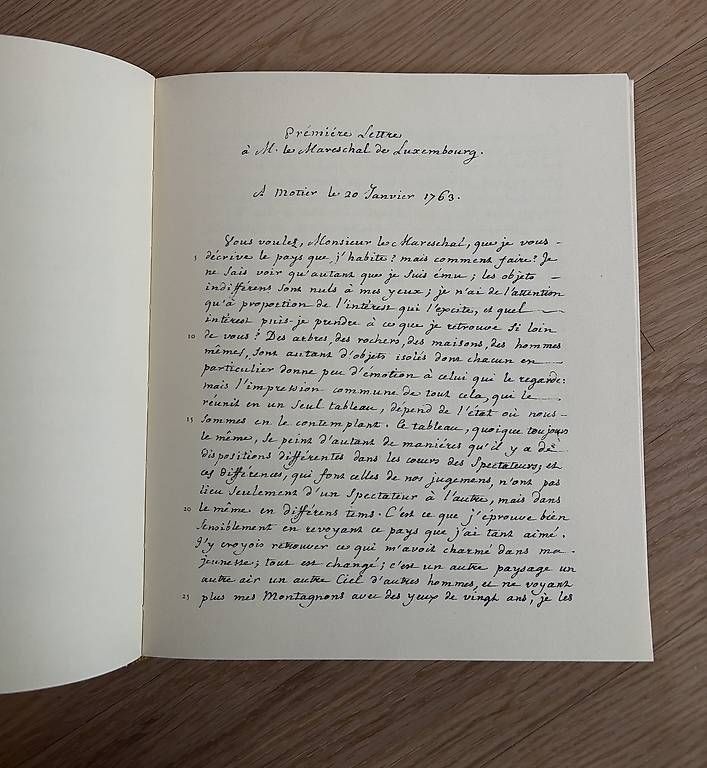 Prémiére Lettre
à M. le Mareschal de Luxembourg.
A Motier le 20 Janvier 1763.
Vous voulez, Monsieur le Mareschal, que je vous -
5 décrive le pays que j'habite? mais comment faire? Je
ne sais voir qu'autant que je suis ému; les objets -
indifférens sont nuls à mes yeux; je n'ai de l'attention
qu'à proportion de l'intérest qui l'excite, et quel -
intérest puis-je prendre à ce que je retrouve si loin
10 de vous? Des arbres, des rochers, des maisons, des hommes
mêmes, sont autant d'objets isolés dont chacun en -
particulier donne peu d'émotion à celui qui le regarde:
mais l'impression commune de tout cela, qui le -
réunit en un seul tableau, dépend de l'état où nous -
15 sommes en le contemplant. Ce tableau, quoique toujours
le même, se peint d'autant de maniéres qu'il y a de
dispositions différentes dans les cœurs des spectateurs; et
ces différences, qui font celles de nos jugemens, n'ont pas
lieu seulement d'un spectateur à l'autre, mais dans
20 le même en différens tems. C'est ce que j'éprouve bien
sensiblement en revoyant ce pays que j'ai tant aimé.
J'y croyois retrouver ce qui m'avoit charmé dans ma -
jeunesse; tout est changé; c'est un autre paysage un
autre air un autre Ciel d'autres hommes, et ne voyant
25 plus mes Montagnons avec des yeux de vingt ans, je les